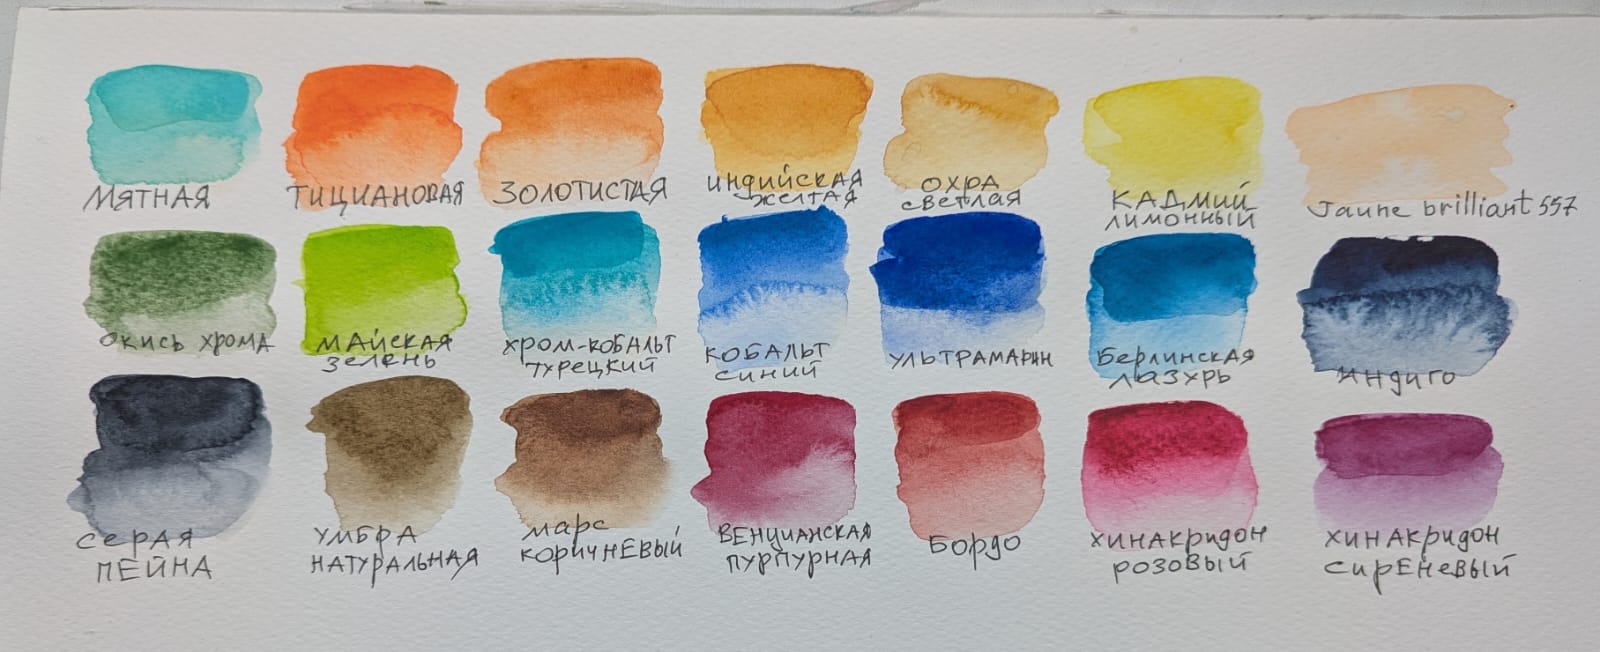 МЯТНАЯ
ТИЦИАНОВАЯ
ЗОЛОТИСТАЯ
ИНДИЙСКАЯ
ЖЕЛТАЯ
ОХРА
СВЕТЛАЯ
КАДМИЙ
ЛИМОННЫЙ
Jaune brilliant 557
ОКИСЬ ХРОМА
МАЙСКАЯ
ЗЕЛЕНЬ
ХРОМ-КОБАЛЬТ
ТУРЕЦКИЙ
КОБАЛЬТ
СИНИЙ
УЛЬТРАМАРИН
БЕРЛИНСКАЯ
ЛАЗУРЬ
ИНДИГО
СЕРАЯ
ПЕЙНА
УМБРА
НАТУРАЛЬНАЯ
МАРС
КОРИЧНЕВЫЙ
ВЕНЦИАНСКАЯ
ПУРПУРНАЯ
БОРДО
ХИНАКРИДОН
РОЗОВЫЙ
ХИНАКРИДОН
СИРЕНЕВЫЙ